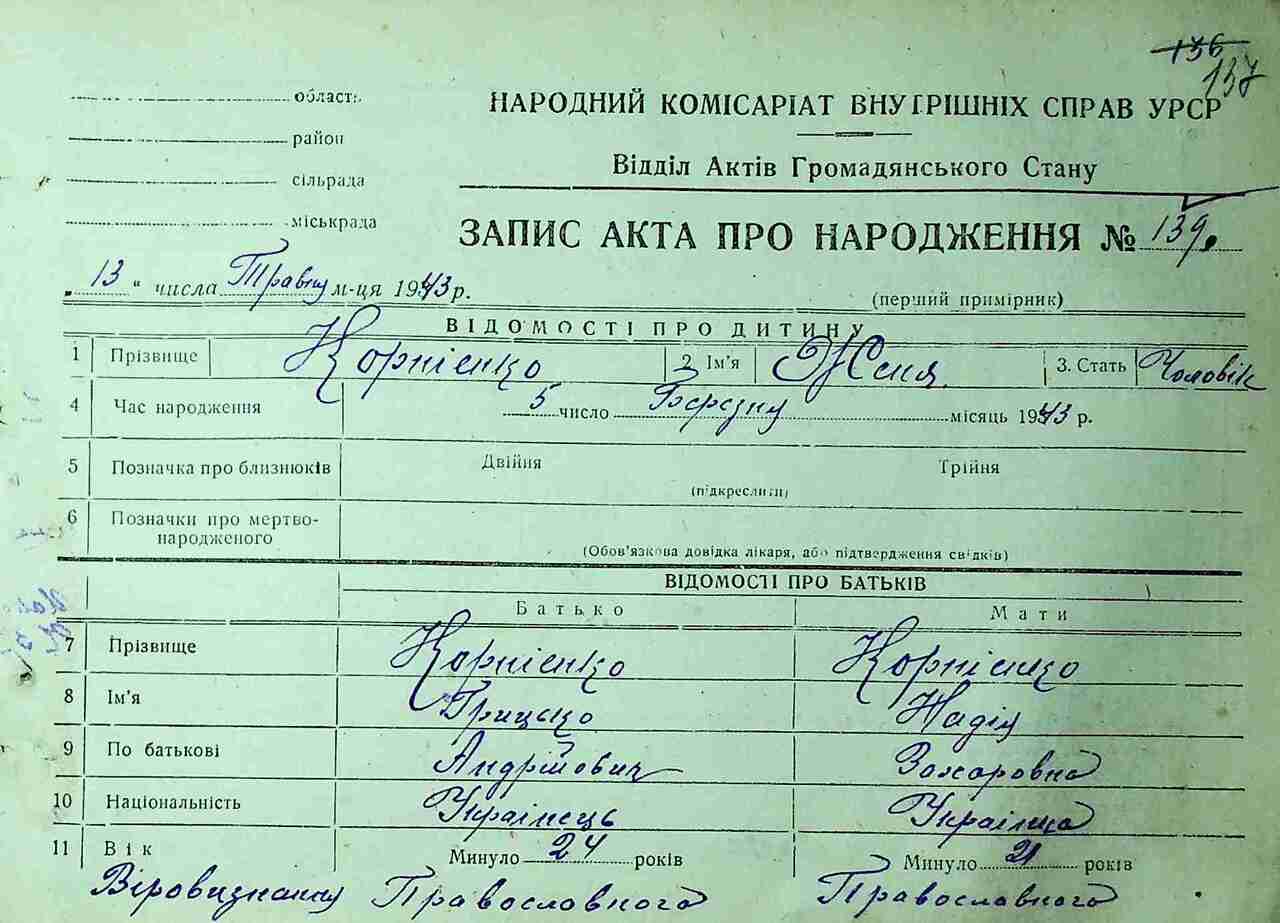 136
137
область
НАРОДНИЙ КОМІСАРІАТ ВНУТРІШНІХ СПРАВ УРСР
район
Відділ Актів Громадянського Стану
сільрада
міськрада
ЗАПИС АКТА ПРО НАРОДЖЕННЯ № 139
„13“ числа Травня м-ця 1943 р.
(перший примірник)
ВІДОМОСТІ ПРО ДИТИНУ
1 Прізвище Корнієнко 2 Ім'я Женя 3. Стать Чоловік
4 Час народження 5 число Березня місяць 1943 р.
5 Позначка про близнюків Двійня Трійня
(підкреслити)
6 Позначки про мертво-
народженого
(Обов'язкова довідка лікаря, або підтвердження свідків)
ВІДОМОСТІ ПРО БАТЬКІВ
Батько Мати
7 Прізвище Корнієнко Корнієнко
8 Ім'я Грицько Надія
9 По батькові Андрійович Захаровна
10 Національність Українець Українка
11 Вік Минуло 24 років Минуло 21 років
Віровизнання Православного Православного